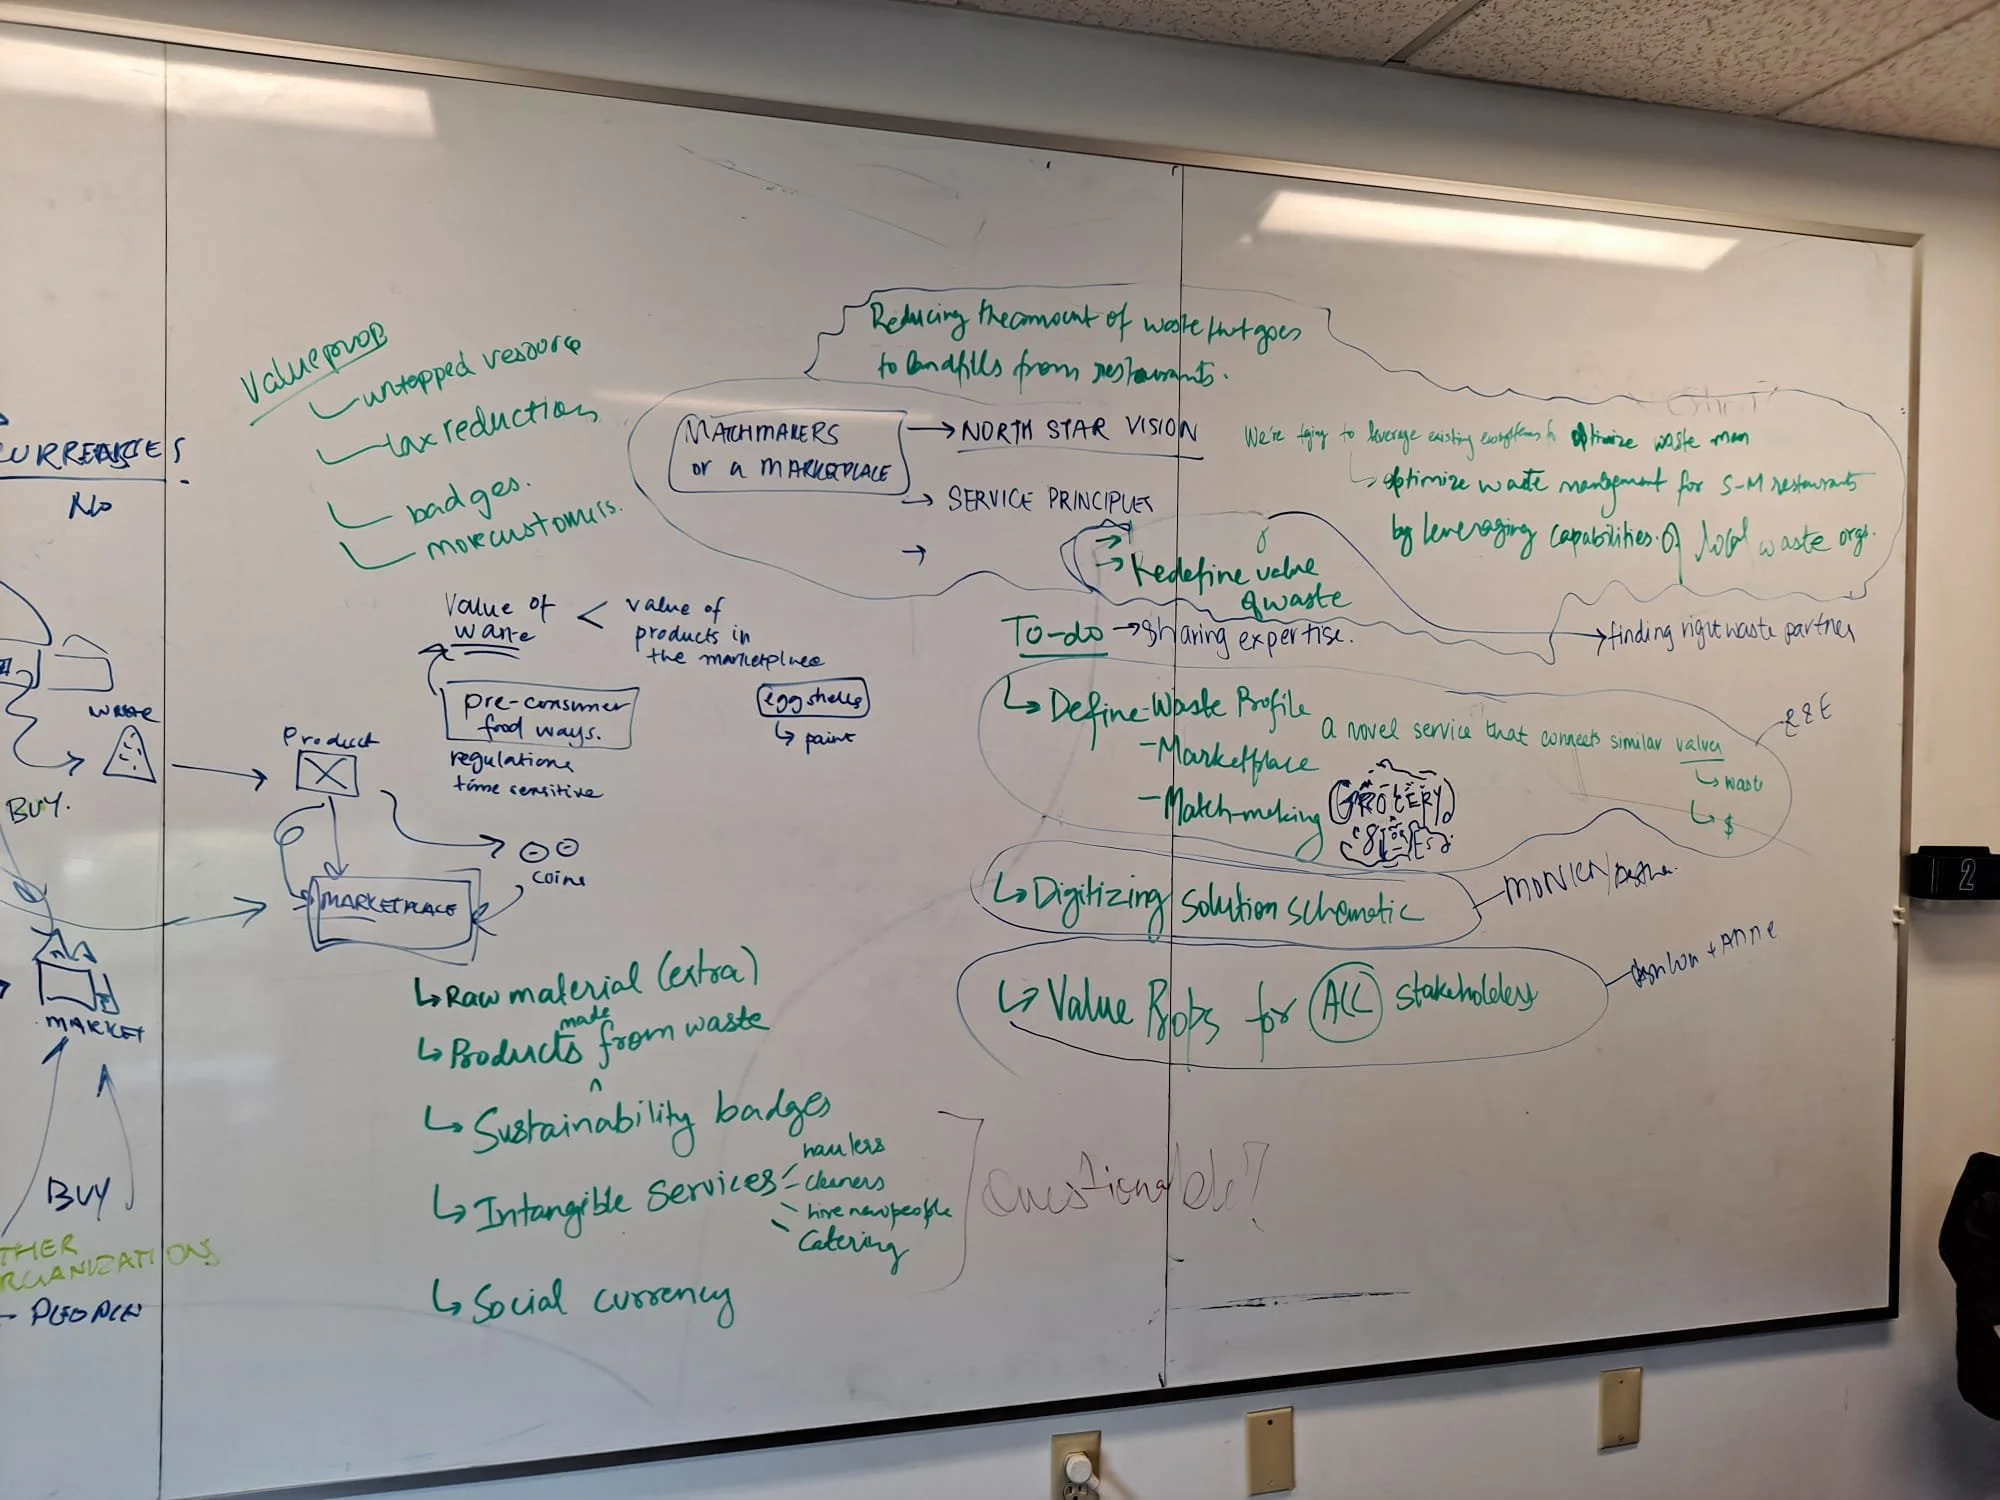 Value prop
untapped resource
tax reduction
badges.
more customers.
Reducing the amount of waste that goes
to landfills from restaurants.
MATCHMAKERS
or a MARKETPLACE
NORTH STAR VISION
SERVICE PRINCIPLES
Redefine value
of waste
We're trying to leverage existing ecosystems to optimize waste man
optimize waste management for S-M restaurants
by leveraging capabilities of local waste orgs.
NO
value of
waste
<
value of
products in
the marketplace
pre-consumer
food ways.
regulations
time sensitive
eggshells
paint
To-do
sharing expertise.
finding right waste partner
Define Waste Profile
- Marketplace
- Match-making
A novel service that connects similar values
waste
$
GROCERY
STORES
Digitizing solution schematic
Value Props for ALL stakeholders
+ Anne
WASTE
Product
BUY.
coins
MARKETPLACE
MARKET
BUY
THER
RGANIZATIONS
- PEOPLE
Raw material (extra)
Products made from waste
Sustainability badges
Intangible services
haulers
cleaners
hire new people
catering
Social currency
Questionable?
2